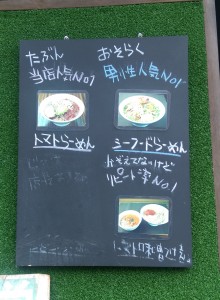 たぶん
当店人気No1
トマトらーめん
おそらく
男性人気No1
シーフードらーめん
かぞえてないけど
リピート率No1